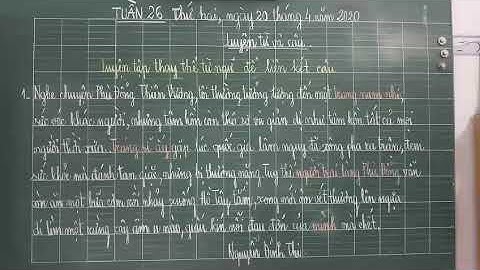 TUẦN 26 Thứ hai, ngày 20 tháng 4 năm 2020
Luyện từ và câu
Luyện tập thay thế từ ngữ để liên kết câu
1. Nghe chuyện Phù Đổng Thiên Vương, tôi thường tưởng tượng đến một trang nam nhi,
sức vóc khác người, nhưng tâm hồn còn thô sơ và giản dị như tâm hồn tất cả mọi
người thời xưa. Tráng sĩ ấy gặp lúc quốc gia lâm nguy đã xông pha ra trận, đem
sức khỏe mà đánh tan giặc, nhưng bị thương nặng. Tuy thế người trai làng Phù Đổng vẫn
còn ăn một bữa cơm rồi nhảy xuống Hồ Tây tắm, xong mới ôm vết thương lên ngựa
đi tìm một rừng cây âm u nào, giấu kín nỗi đau đớn của mình mà chết.
Nguyễn Đình Thi